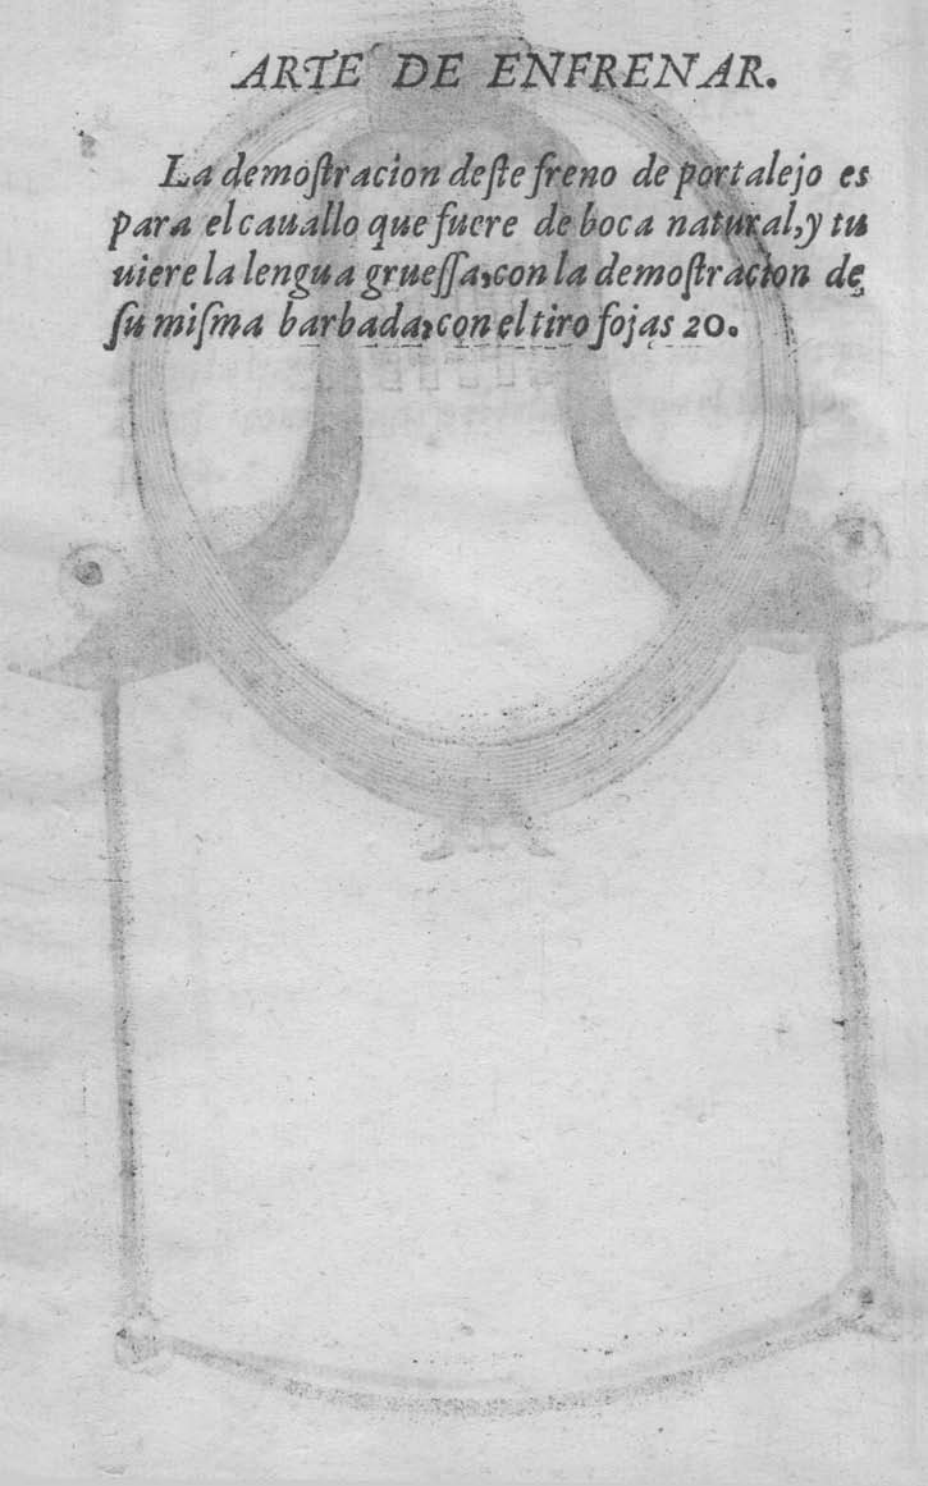 ARTE DE ENFRENAR.
La demoſtracion deſte freno de portalejo es
para el cauallo que fuere de boca natural, y tu
uiere la lengua grueſſa, con la demoſtracion de
ſu miſma barbada, con el tiro fojas 20.